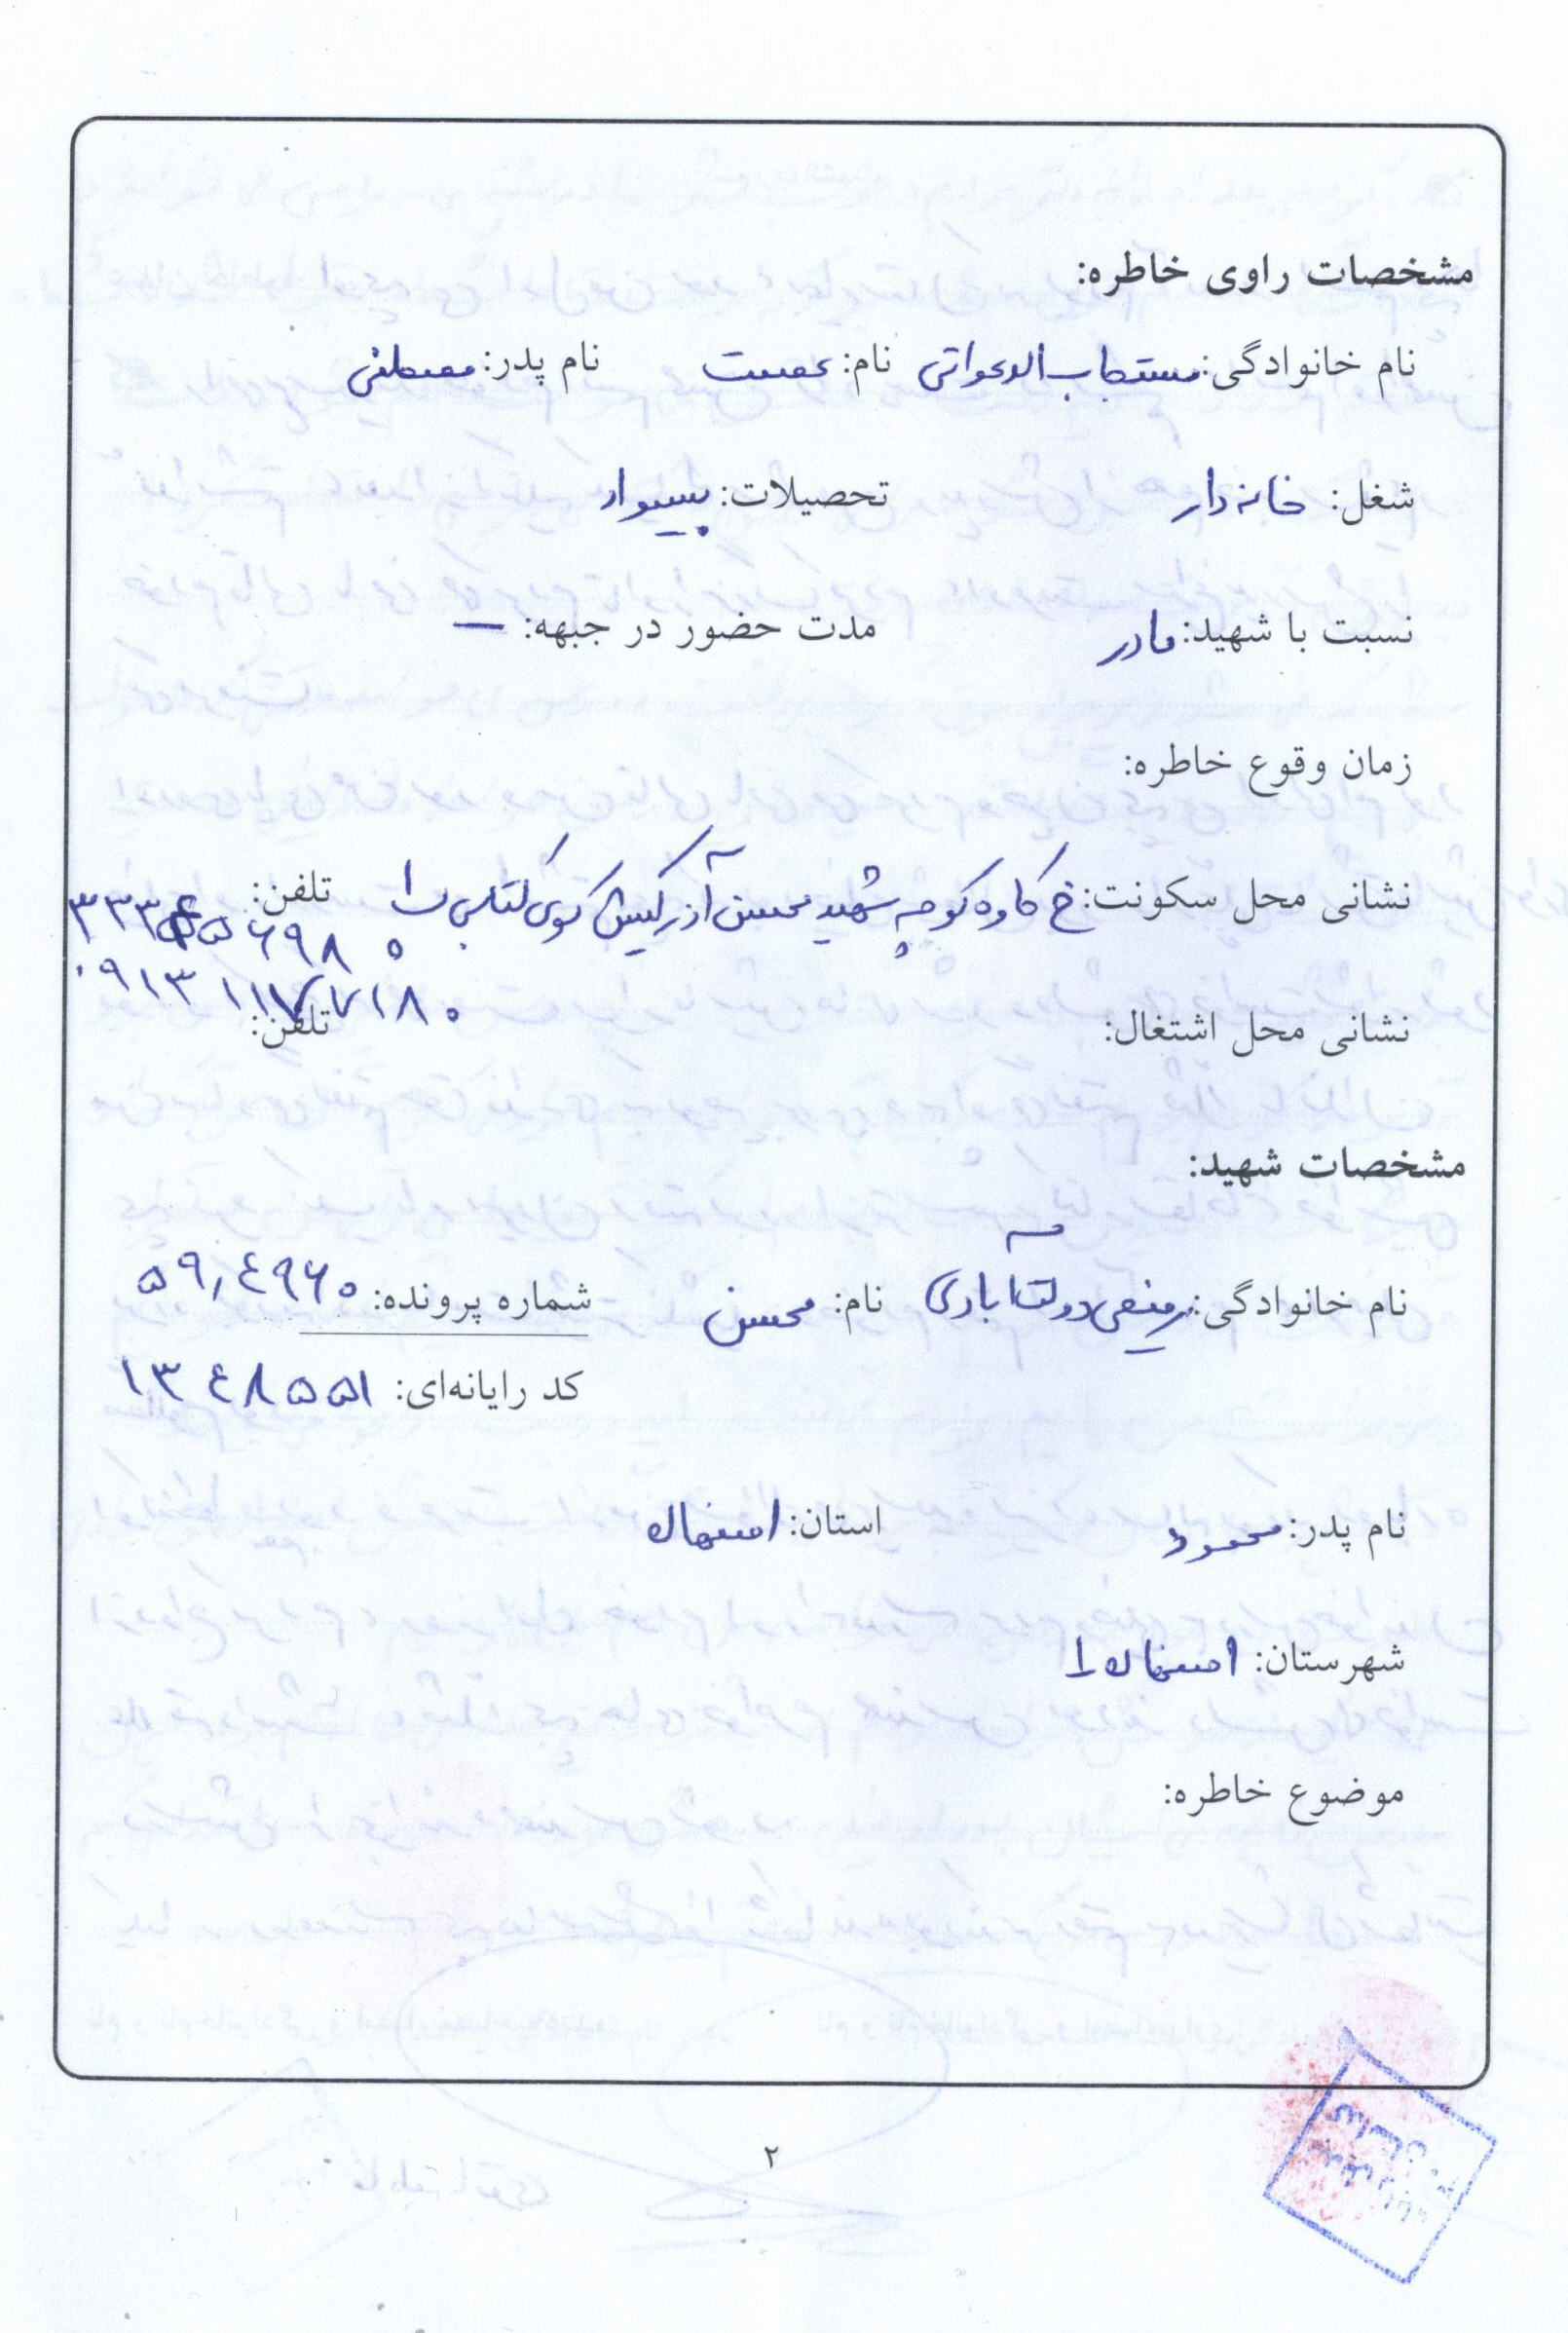 مشخصات راوی خاطره:
نام خانوادگی: مستجاب الدعواتی نام: عصمت نام پدر: مصطفی
شغل: خانه دار تحصیلات: بیسواد
نسبت با شهید: مادر مدت حضور در جبهه: —
زمان وقوع خاطره:
نشانی محل سکونت: خ کاوه کوچه شهید محسن آذرکیش کوی تلفن:
۰۹۱۳۱۱۷۷۱۸۰
نشانی محل اشتغال: تلفن:
مشخصات شهید:
نام خانوادگی: دولت آبادی نام: محسن شماره پرونده: ۵۹,۴۹۶۰
کد رایانه‌ای: ۱۳۴۸۵۵۱
نام پدر: محمود استان: اصفهان
شهرستان: اصفهان ۱
موضوع خاطره:
۲